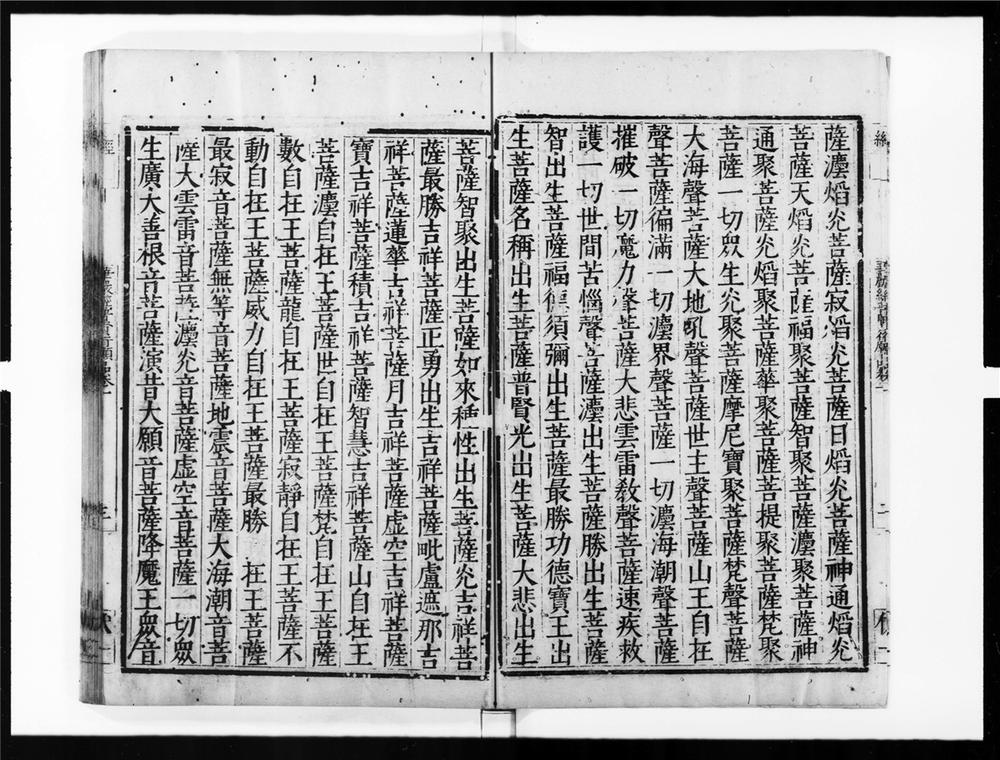 薩灋熖炎菩薩寂熖炎菩薩日熖炎菩薩神通熖炎
菩薩天熖炎菩薩福聚菩薩智聚菩薩灋聚菩薩神
通聚菩薩炎熖聚菩薩華聚菩薩菩提聚菩薩梵聚
菩薩一切眾生炎聚菩薩摩尼寶聚菩薩梵聲菩薩
大海聲菩薩大地吼聲菩薩世主聲菩薩山王自在
聲菩薩徧滿一切灋界聲菩薩一切灋海潮聲菩薩
摧破一切魔力聲菩薩大悲雲雷敎聲菩薩速疾救
護一切世間苦惱聲菩薩灋出生菩薩勝出生菩薩
智出生菩薩福德須彌出生菩薩最勝功德寶王出
生菩薩名稱出生菩薩普賢光出生菩薩大悲出生
菩薩智聚出生菩薩如來種性出生菩薩炎吉祥菩
薩最勝吉祥菩薩正勇出生吉祥菩薩毗盧遮那吉
祥菩薩蓮華吉祥菩薩月吉祥菩薩虛空吉祥菩薩
寶吉祥菩薩積吉祥菩薩智慧吉祥菩薩山自在王
菩薩灋自在王菩薩世自在王菩薩梵自在王菩薩
數自在王菩薩龍自在王菩薩寂靜自在王菩薩不
動自在王菩薩威力自在王菩薩最勝 在王菩薩
最寂音菩薩無等音菩薩地震音菩薩大海潮音菩
薩大雲雷音菩薩灋炎音菩薩虛空音菩薩一切眾
生廣大善根音菩薩演昔大願音菩薩降魔王眾音